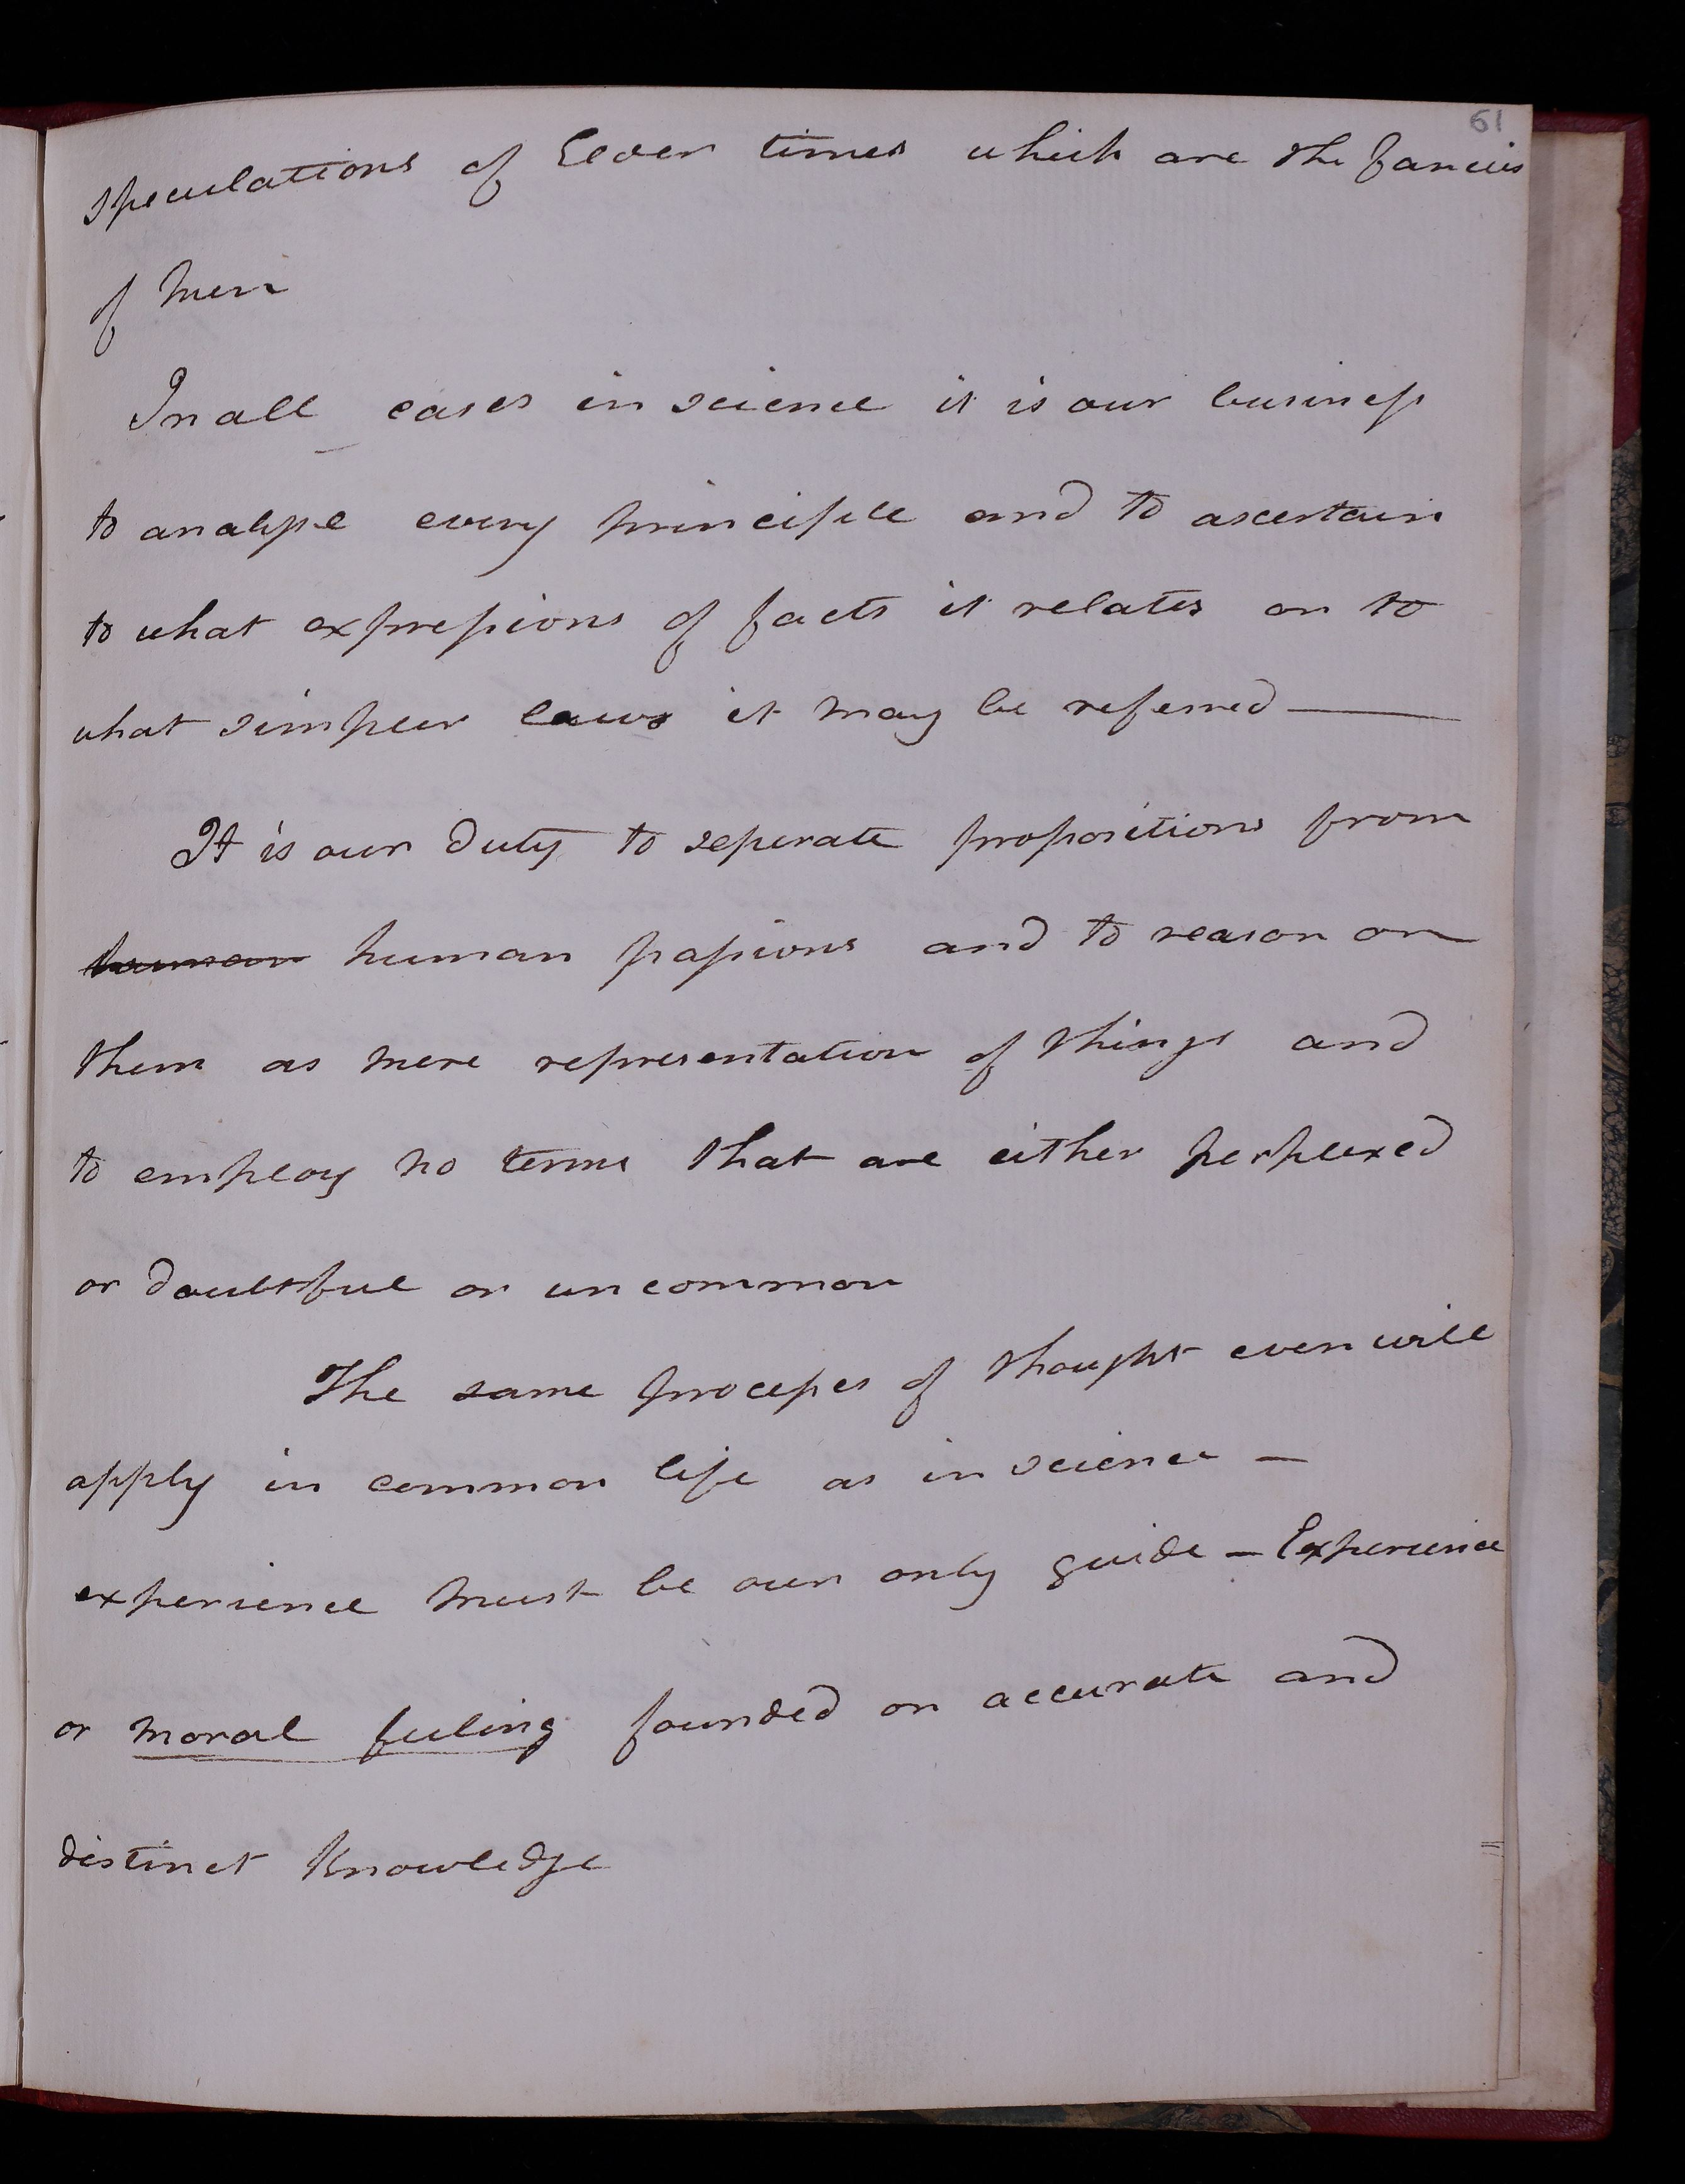 61
speculations of Elder times which are the fancies
of Men
In all cases in science it is our business
to analyse every principle and to ascertain
to what expressions of facts it relates or to
what simpler laws it may be referred ——
It is our duty to seperate propositions from
human human passions and to reason on
them as mere representation of things and
to employ no terms that are either perplexed
or doubtful or uncommon
The same processes of thought even will
apply in common life as in science —
experience must be our only guide — Experience
or moral feeling founded on accurate and
distinct Knowledge